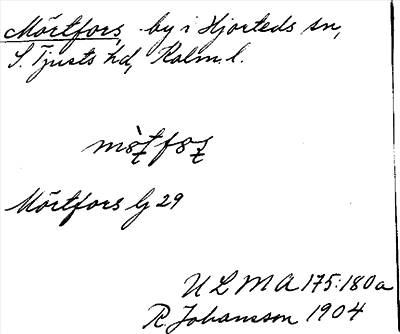 Mörtfors, by i Hjorteds sn,
S. Tjusts hd, Kalm. l.
Mörtfors lj 29
ULMA 175:180a
R. Johansson 1904